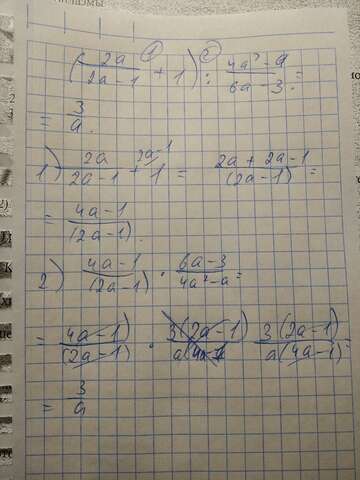 ① ②
(2a/(2a-1) + 1) : (4a²-a)/(6a-3) =
= 3/a.
1) 2a/(2a-1) + 1^(2a-1) = (2a+2a-1)/(2a-1) =
= (4a-1)/(2a-1).
2) (4a-1)/(2a-1) · (6a-3)/(4a²-a) =
= (4a-1)/(2a-1) · 3(2a-1)/a(4a-1) 3(2a-1)/a(4a-1) =
= 3/a